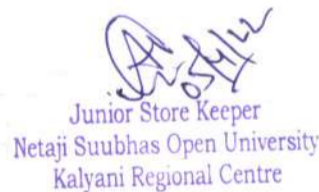 05/4/22
Junior Store Keeper
Netaji Suubhas Open University
Kalyani Regional Centre